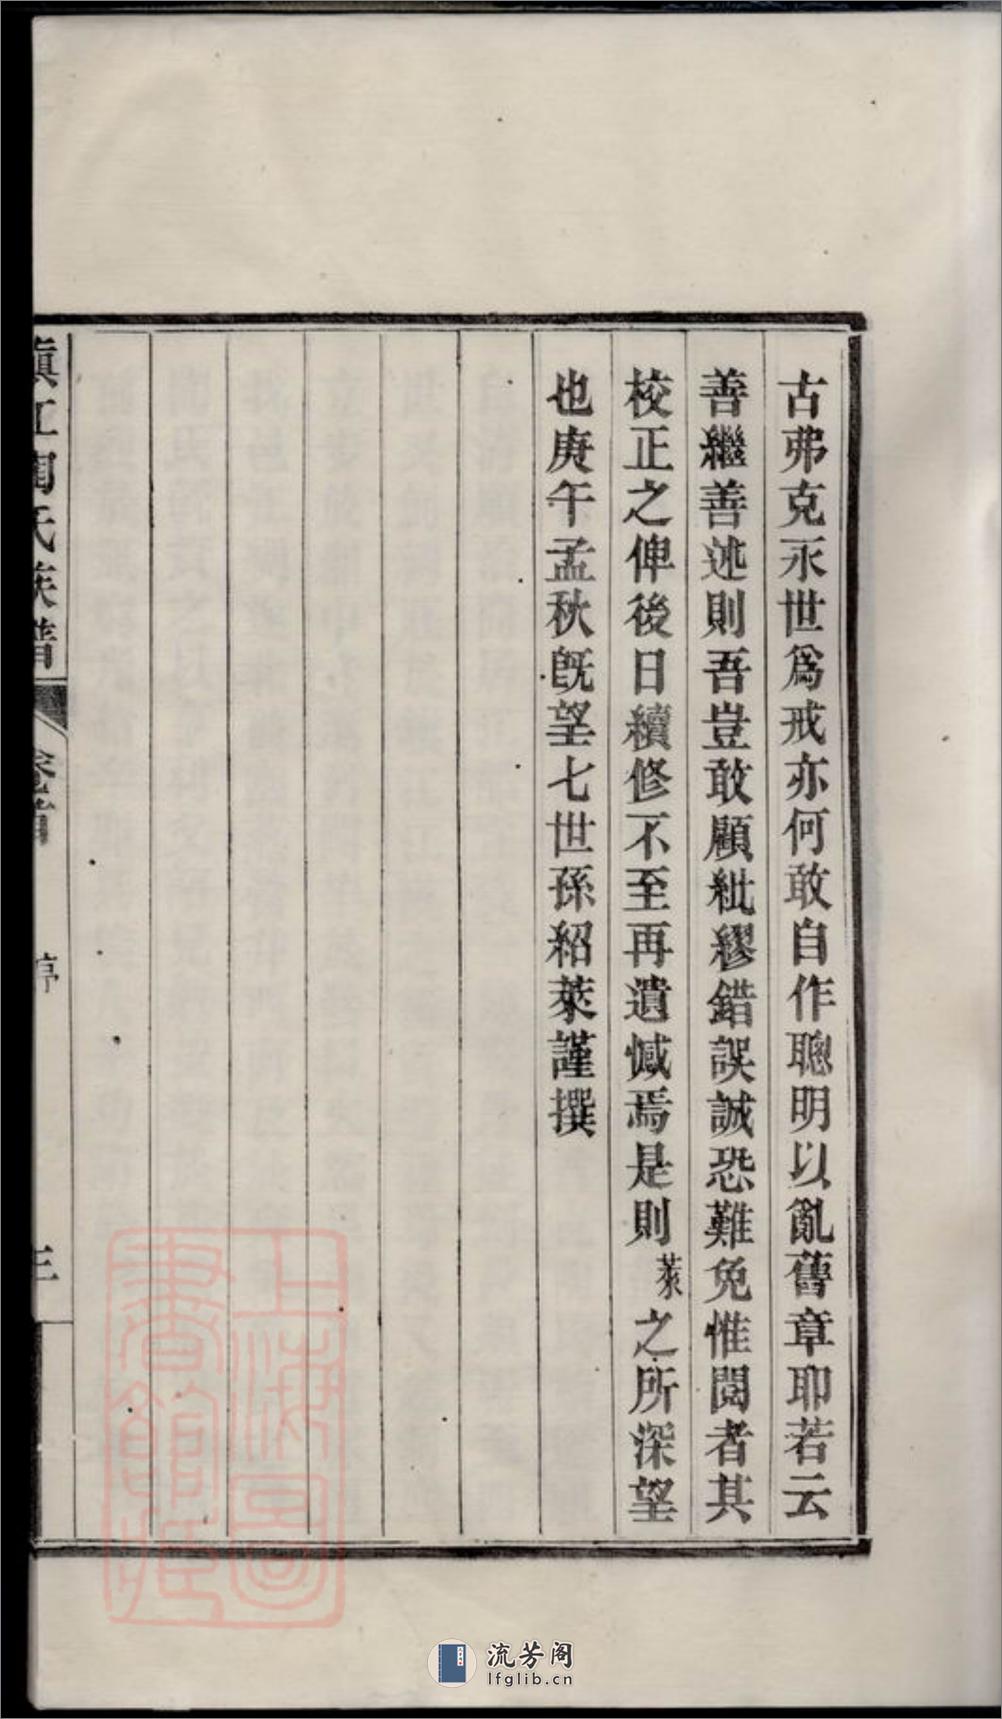 古弗克永世爲戒亦何敢自作聰明以亂舊章耶若云
善繼善述則吾豈敢顧紕繆錯誤誠恐難免惟閱者其
校正之俾後日續修不至再遺憾焉是則萊之所深望
也庚午孟秋旣望七世孫紹萊謹撰
氏族譜
卷首
序
上海圖書館藏
流芳阁
lfglib.cn